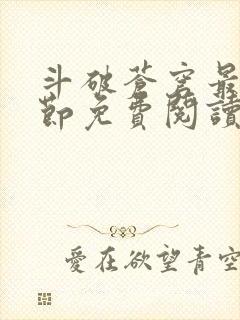 斗破蒼穹最
節免費閱讀
愛在欲望青空